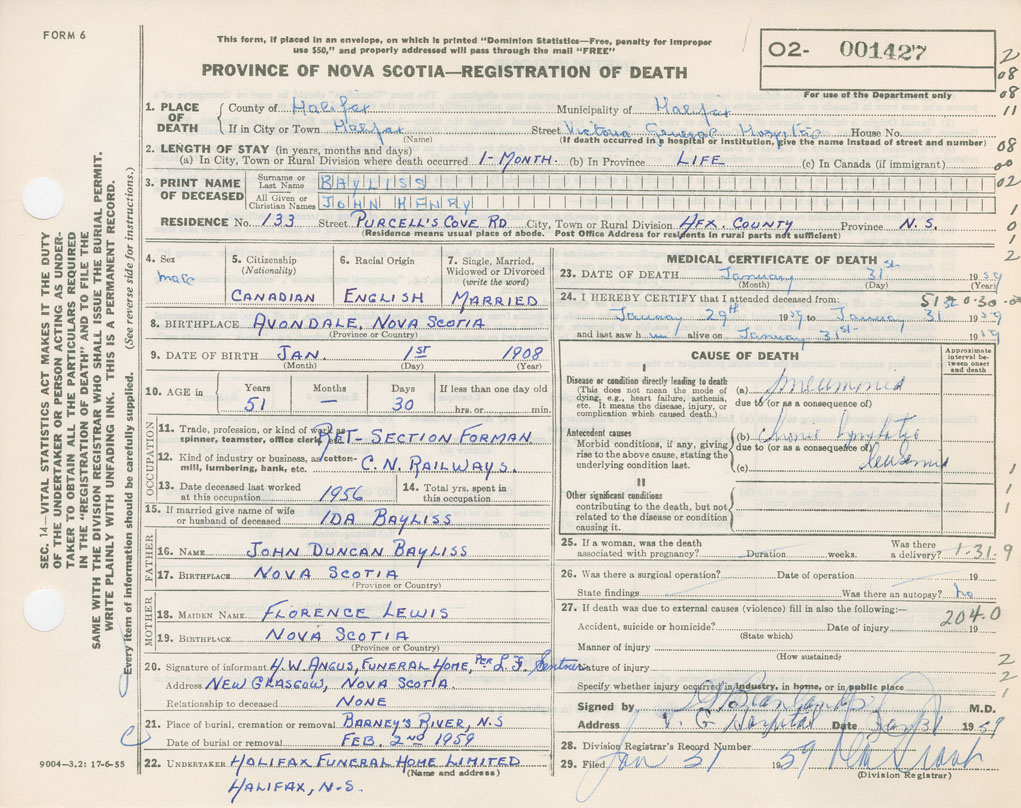 FORM 6
This form, if placed in an envelope, on which is printed "Dominion Statistics—Free, penalty for improper
use $50," and properly addressed will pass through the mail "FREE"
PROVINCE OF NOVA SCOTIA—REGISTRATION OF DEATH
02- 001427
For use of the Department only
2
08
08
11
08
00
02
1
0
1
2
SEC. 14—VITAL STATISTICS ACT MAKES IT THE DUTY
OF THE UNDERTAKER OR PERSON ACTING AS UNDER-
TAKER TO OBTAIN ALL THE PARTICULARS REQUIRED
IN THE "REGISTRATION OF DEATH" AND FILE THE
SAME WITH THE DIVISION REGISTRAR WHO SHALL ISSUE THE BURIAL PERMIT.
WRITE PLAINLY WITH UNFADING INK. THIS IS A PERMANENT RECORD.
Every item of information should be carefully supplied. (See reverse side for instructions.)
1. PLACE OF DEATH
County of Halifax Municipality of Halifax
If in City or Town Halifax Street Victoria General Hospital House No.
(Name) (If death occurred in a hospital or institution, give the name instead of street and number)
2. LENGTH OF STAY (in years, months and days)
(a) In City, Town or Rural Division where death occurred 1-MONTH. (b) In Province LIFE (c) In Canada (if immigrant)
3. PRINT NAME OF DECEASED
Surname or Last Name BAYLISS
All Given or Christian Names JOHN HENRY
RESIDENCE No. 133 Street PURCELL'S COVE RD City, Town or Rural Division HFX. COUNTY Province N.S.
(Residence means usual place of abode. Post Office Address for residents in rural parts not sufficient)
4. Sex male
5. Citizenship (Nationality) CANADIAN
6. Racial Origin ENGLISH
7. Single, Married, Widowed or Divorced (write the word) MARRIED
8. BIRTHPLACE AVONDALE, NOVA SCOTIA
(Province or Country)
9. DATE OF BIRTH JAN. 1ST 1908
(Month) (Day) (Year)
10. AGE in Years 51 Months — Days 30 If less than one day old hrs. or min.
OCCUPATION
11. Trade, profession, or kind of work as
spinner, teamster, office clerk RET- SECTION FORMAN
12. Kind of industry or business, as cotton-
mill, lumbering, bank, etc. C.N. RAILWAYS.
13. Date deceased last worked
at this occupation 1956
14. Total yrs. spent in
this occupation
15. If married give name of wife
or husband of deceased IDA BAYLISS
FATHER
16. NAME JOHN DUNCAN BAYLISS
17. BIRTHPLACE NOVA SCOTIA
(Province or Country)
MOTHER
18. MAIDEN NAME FLORENCE LEWIS
19. BIRTHPLACE NOVA SCOTIA
(Province or Country)
20. Signature of informant H.W. ANGUS, FUNERAL HOME, PER L.F.
Address NEW GLASGOW, NOVA SCOTIA.
Relationship to deceased NONE
21. Place of burial, cremation or removal BARNEY'S RIVER, N.S
Date of burial or removal FEB. 2ND 1959
22. UNDERTAKER HALIFAX FUNERAL HOME LIMITED
(Name and address)
HALIFAX, N.S.
9004-3.2: 17-6-55
MEDICAL CERTIFICATE OF DEATH
23. DATE OF DEATH January 31st 1959
(Month) (Day) (Year)
24. I HEREBY CERTIFY that I attended deceased from:
January 29th 1959 to January 31 1959
and last saw him alive on January 31st 1959
CAUSE OF DEATH
Approximate interval between onset and death
I
Disease or condition directly leading to death
(This does not mean the mode of
dying, e.g., heart failure, asthenia,
etc. It means the disease, injury, or
complication which caused death.)
(a) Pneumonia
due to (or as a consequence of)
Antecedent causes
Morbid conditions, if any, giving
rise to the above cause, stating the
underlying condition last.
(b) Chronic lymphatic
due to (or as a consequence of)
(c) leukemia
II
Other significant conditions
contributing to the death, but not
related to the disease or condition
causing it.
1
1
1
25. If a woman, was the death
associated with pregnancy? Duration weeks. Was there a delivery?
1-31-9
26. Was there a surgical operation? Date of operation 19
State findings Was there an autopsy? no
27. If death was due to external causes (violence) fill in also the following:—
2040
Accident, suicide or homicide? Date of injury 19
(State which)
Manner of injury
(How sustained)
Nature of injury
Specify whether injury occurred in industry, in home, or in public place
2
2
1
Signed by M.D.
Address V. G Hospital Date Jan 31 1959
28. Division Registrar's Record Number
29. Filed Jan 31 1959
(Division Registrar)